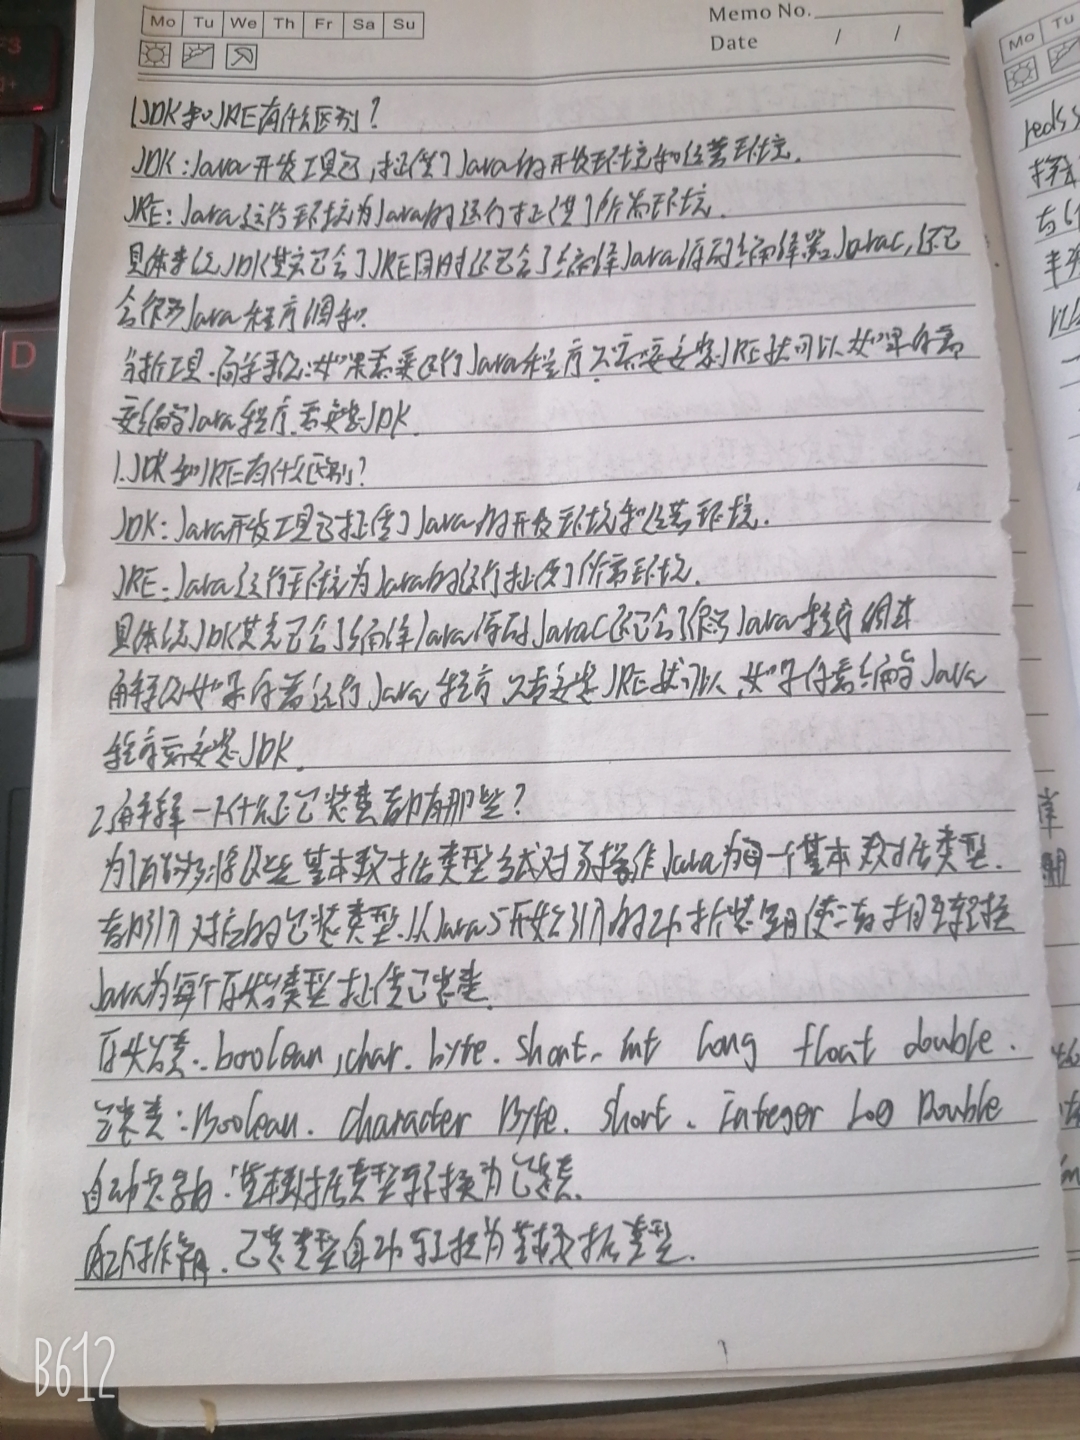 Mo Tu We Th Fr Sa Su
Memo No.
Date / /
1.JDK和JRE有什么区别？
JDK：Java开发工具包，提供了Java的开发环境和运营环境.
JRE：Java运行环境为Java的运行提供了所需环境.
具体来说JDK其实包含了JRE同时还包含了编译Java源码编译器Javac,还包
含很多Java程序调和
分析工具.简单来说：如果需要运行Java程序只需要安装JRE就可以如果你需
要编写Java程序.需安装JDK
1.JDK和JRE有什么区别?
JDK：Java开发工具包提供了Java的开发环境和运营环境.
JRE：Java运行环境为Java的运行提供了所需环境.
具体说JDK其实包含了编译Java源码JavaC还包含了很多Java程序调
如果你需运行Java程序只需安装JRE就可以,如果你需编写Java
程序需安装JDK.
2.解释一下什么是包装类都有那些?
为了能够将这些基本数据类型当成对象操作Java为每一个基本数据类型.
都引入对应的包装类型.从Java5开始引入的自动拆装箱使二者相互转换
Java为每个原始类型提供包装类.
原始类.boolean,char.byte.short.int long float double.
包装类：Boolean.Character Byte.Short.Integer Log Double
自动装箱.基本数据类型转换为包装类.
自动拆箱.包装类型自动转换为基本数据类型.
1
B612
Mo Tu